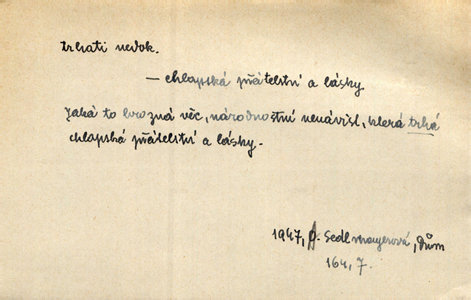 trhati nedok.
— chlapská přátelství a lásky
Jaká to hrozná věc, národnostní nenávist, která trhá
chlapská přátelství a lásky.
1947, J. Sedlmayerová, Dům
164, 7.